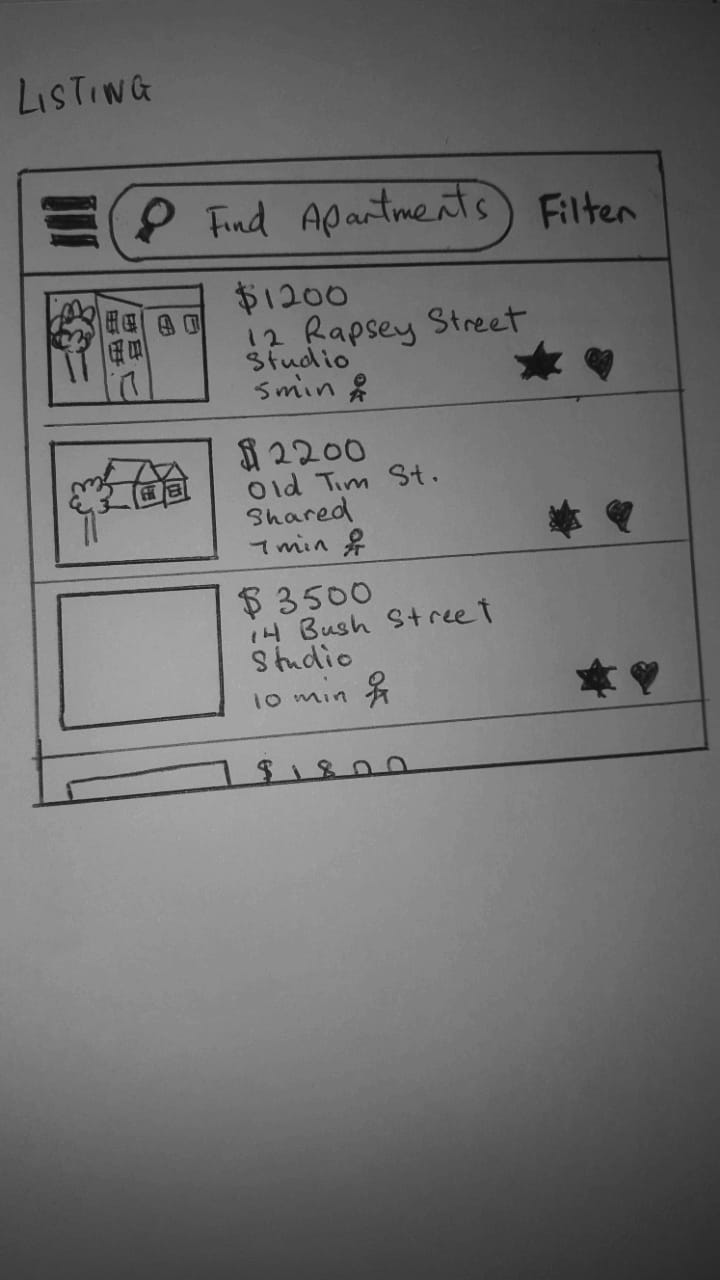 LISTING
Find Apartments Filter
$1200
12 Rapsey Street
Studio
5min
$2200
Old Tim St.
Shared
7min
$3500
14 Bush Street
Studio
10 min
$1800